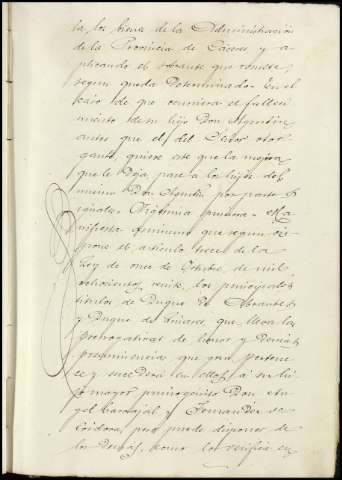 la los bienes de la Administración
de la Provincia de Cáceres y a-
plicando el sobrante que resulte,
segun queda determinado. En el
caso de que ocurriera el falleci-
miento de su hijo Don Agustin
antes que el del Señor otor-
gante, quiere este que la mejora
que le deja, pase a los hijos del
mismo Don Agustin por partes i-
guales. Vigésima primera. Ma-
nifiesta asimismo que segun dis-
pone el artículo trece de la
Ley de once de Octubre de mil
ochocientos veinte, los principales
titulos de Duque de Abrantes
y Duque de Linares, que lleva las
prerrogativas de honor y demás
preeminencias que goza pertene-
ce y sucederá en ellos a su hi-
jo mayor primogénito Don An-
gel Carbajal y Fernandez de
Córdova, pero puede disponer de
los demás, como lo verifica en